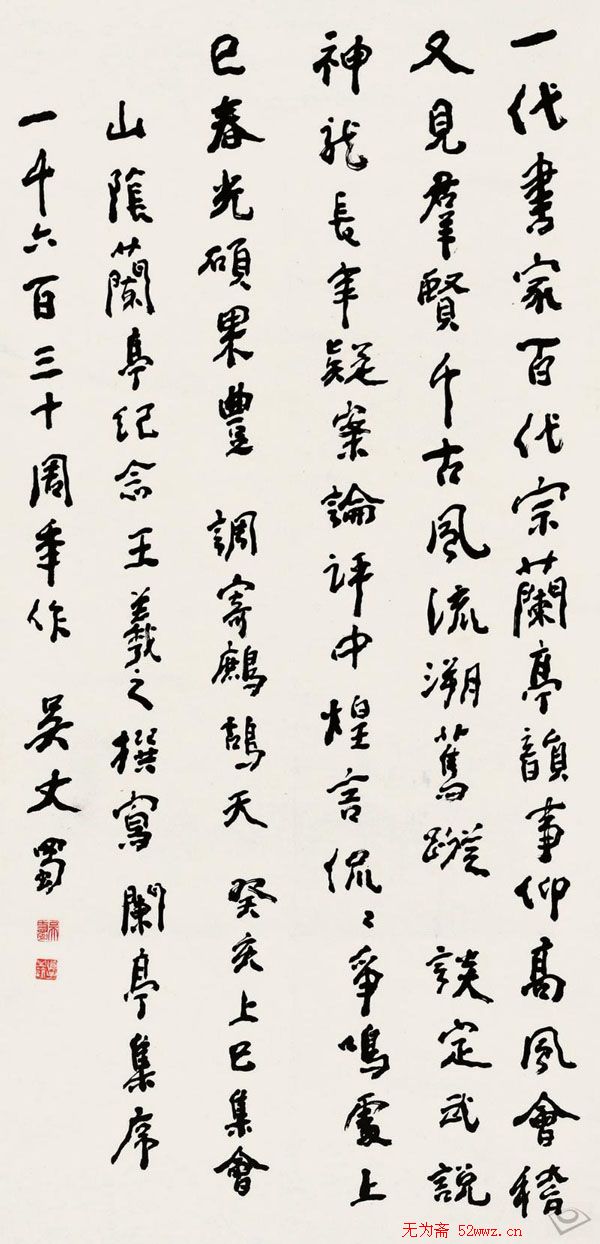 一代書家百代宗蘭亭韻事仰高風會稽
又見羣賢千古風流溯舊蹤 談定武說
神龍長年疑案論評中煌言侃〻爭鳴處上
巳春光碩果豐 調寄鷓鴣天 癸亥上巳集會
山陰蘭亭纪念王羲之撰寫蘭亭集序
一千六百三十周年作 吳丈蜀
无为斋 52wwz.cn